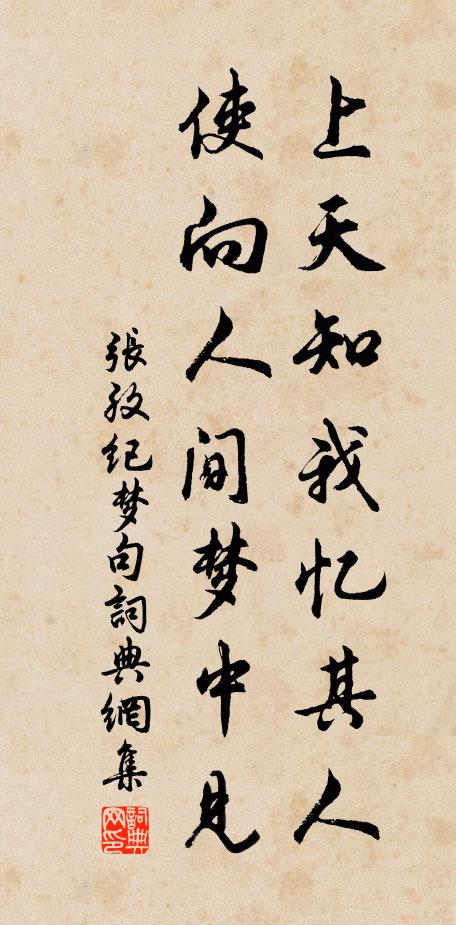 上天知我忆其人
使向人间梦中见
張孜纪梦句詞典網集
詞典网印